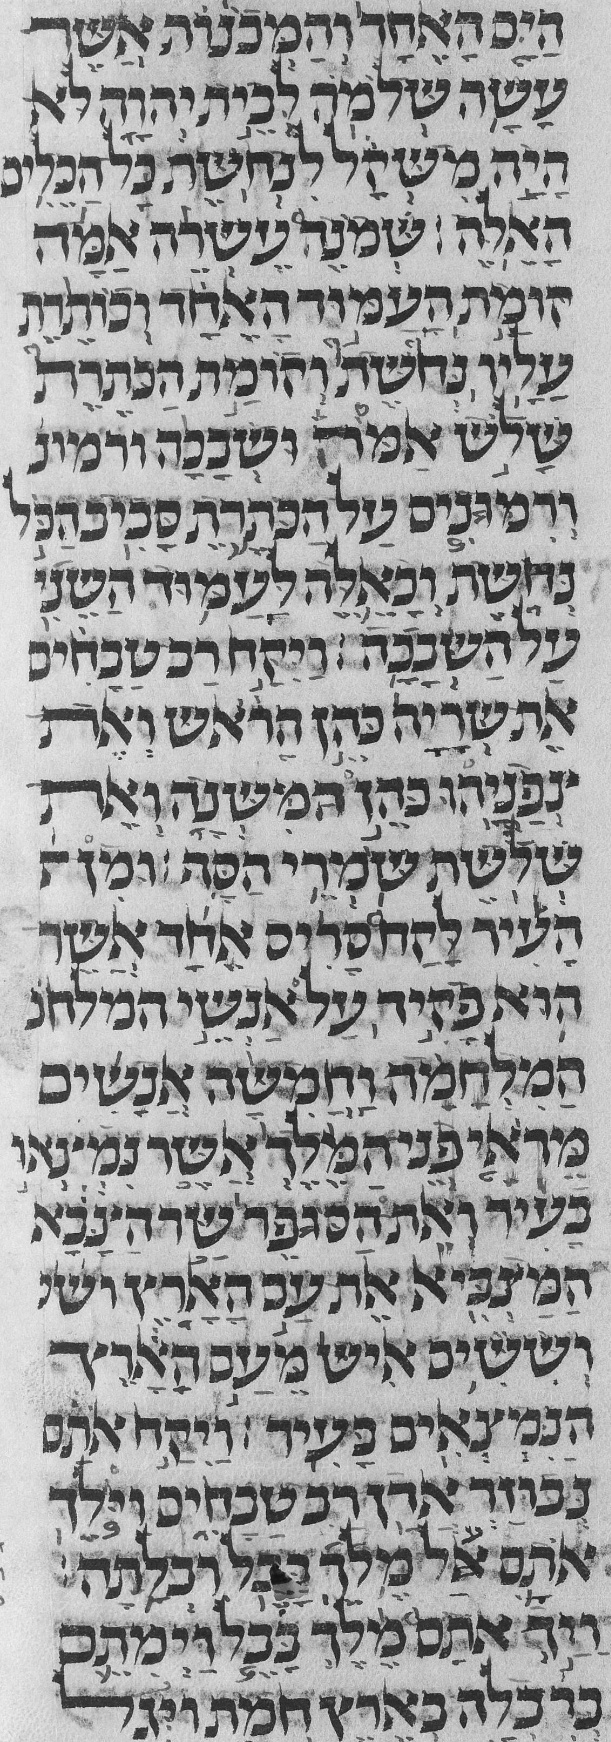 הַיָּם הָאֶחָד וְהַמְּכֹנוֹת אֲשֶׁר
עָשָׂה שְׁלֹמֹה לְבֵית יְהוָה לֹא
הָיָה מִשְׁקָל לִנְחֹשֶׁת כָּל הַכֵּלִים
הָאֵלֶּה ׃ שְׁמֹנֶה עֶשְׂרֵה אַמָּה
קוֹמַת הָעַמּוּד הָאֶחָד וְכוֹתֶרֶת
עָלָיו נְחֹשֶׁת וְקוֹמַת הַכֹּתֶרֶת
שָׁלֹשׁ אַמּוֹת וּשְׂבָכָה ורמונ
וְרִמּוֹנִים עַל הַכֹּתֶרֶת סָבִיב הַכֹּל
נְחֹשֶׁת וְכָאֵלֶּה לַעַמּוּד הַשֵּׁנִי
עַל הַשְּׂבָכָה ׃ וַיִּקַּח רַב טַבָּחִים
אֶת שְׂרָיָה כֹּהֵן הָרֹאשׁ וְאֶת
צְפַנְיָהוּ כֹּהֵן הַמִּשְׁנֶה וְאֶת
שְׁלֹשֶׁת שֹׁמְרֵי הַסַּף ׃ וּמִן ה
הָעִיר לָקַח סָרִיס אֶחָד אֲשֶׁר
הוּא פָקִיד עַל אַנְשֵׁי המלחמ
הַמִּלְחָמָה וַחֲמִשָּׁה אֲנָשִׁים
מֵרֹאֵי פְנֵי הַמֶּלֶךְ אֲשֶׁר נִמְצְאוּ
בָעִיר וְאֵת הַסֹּפֵר שַׂר הַצָּבָא
הַמַּצְבִּיא אֶת עַם הָאָרֶץ ושש
וְשִׁשִּׁים אִישׁ מֵעַם הָאָרֶץ
הַנִּמְצְאִים בָּעִיר ׃ וַיִּקַּח אֹתָם
נְבוּזַר אֲדָן רַב טַבָּחִים וַיֹּלֶךְ
אֹתָם אֶל מֶלֶךְ בָּבֶל רִבְלָתָה ׃
וַיַּךְ אֹתָם מֶלֶךְ בָּבֶל וַיְמִתֵם
בְּרִבְלָה בְּאֶרֶץ חֲמָת וַיִּגֶל